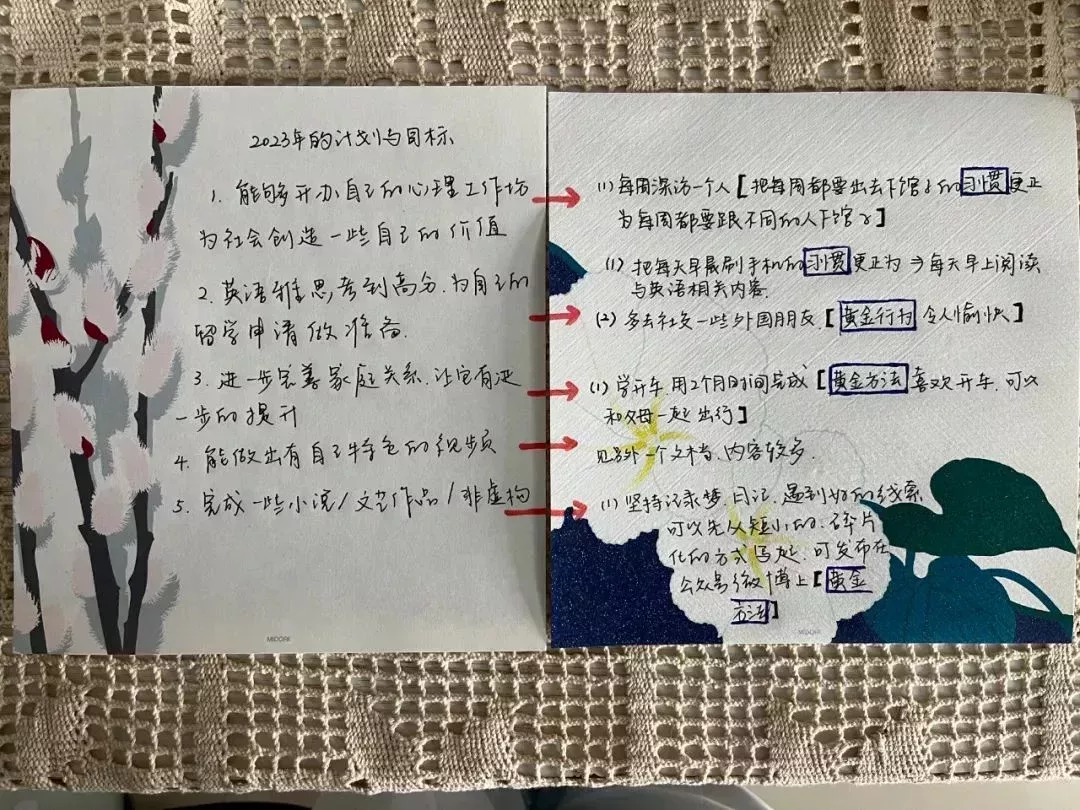 2023年的计划与目标
1. 能够开办自己的心理工作坊
为社会创造一些自己的价值
2. 英语雅思考到高分.为自己的
留学申请做准备.
3. 进一步完善家庭关系.让它有进
一步的提升
4. 能做出有自己特色的视频
5. 完成一些小说/文艺作品/非虚构
MIDORI
(1) 每周深访一个人【把每周都要出去下馆子的习惯更正
为每周都要跟不同的人下馆子】
(1) 把每天早晨刷手机的习惯更正为→每天早上阅读
与英语相关内容.
(2) 多去社交一些外国朋友.【黄金行为 令人愉快】
(1) 学开车.用2个月时间完成【黄金方法 喜欢开车.可以
和父母一起出行】
见另外一个文档.内容较多.
(1) 坚持记录梦.日记.遇到好的线索.
可以先从短小的.碎片
化的方式写起.可发布在
公众号/微博上【黄金
方法】
MIDORI